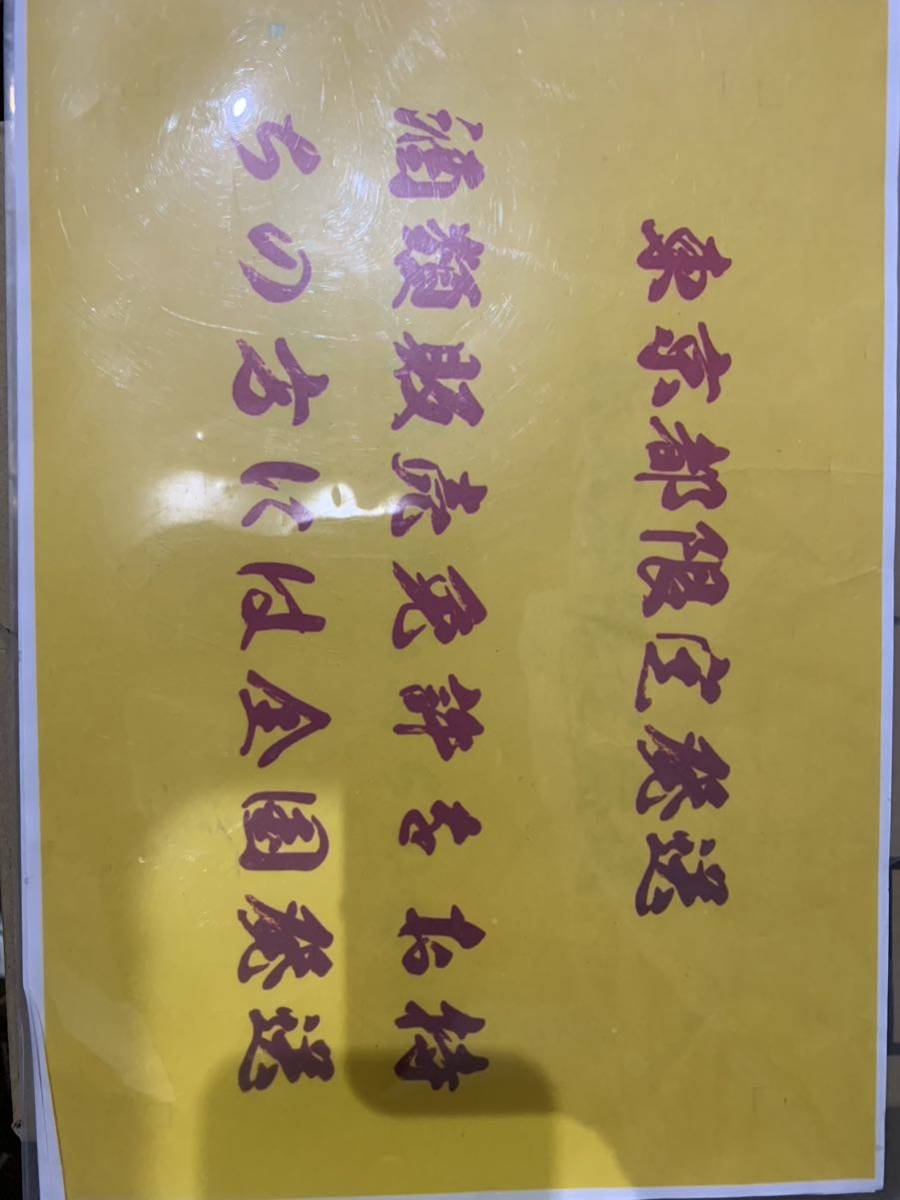 東京都限定発送
酒類販売免許をお持
ちの方には全国発送